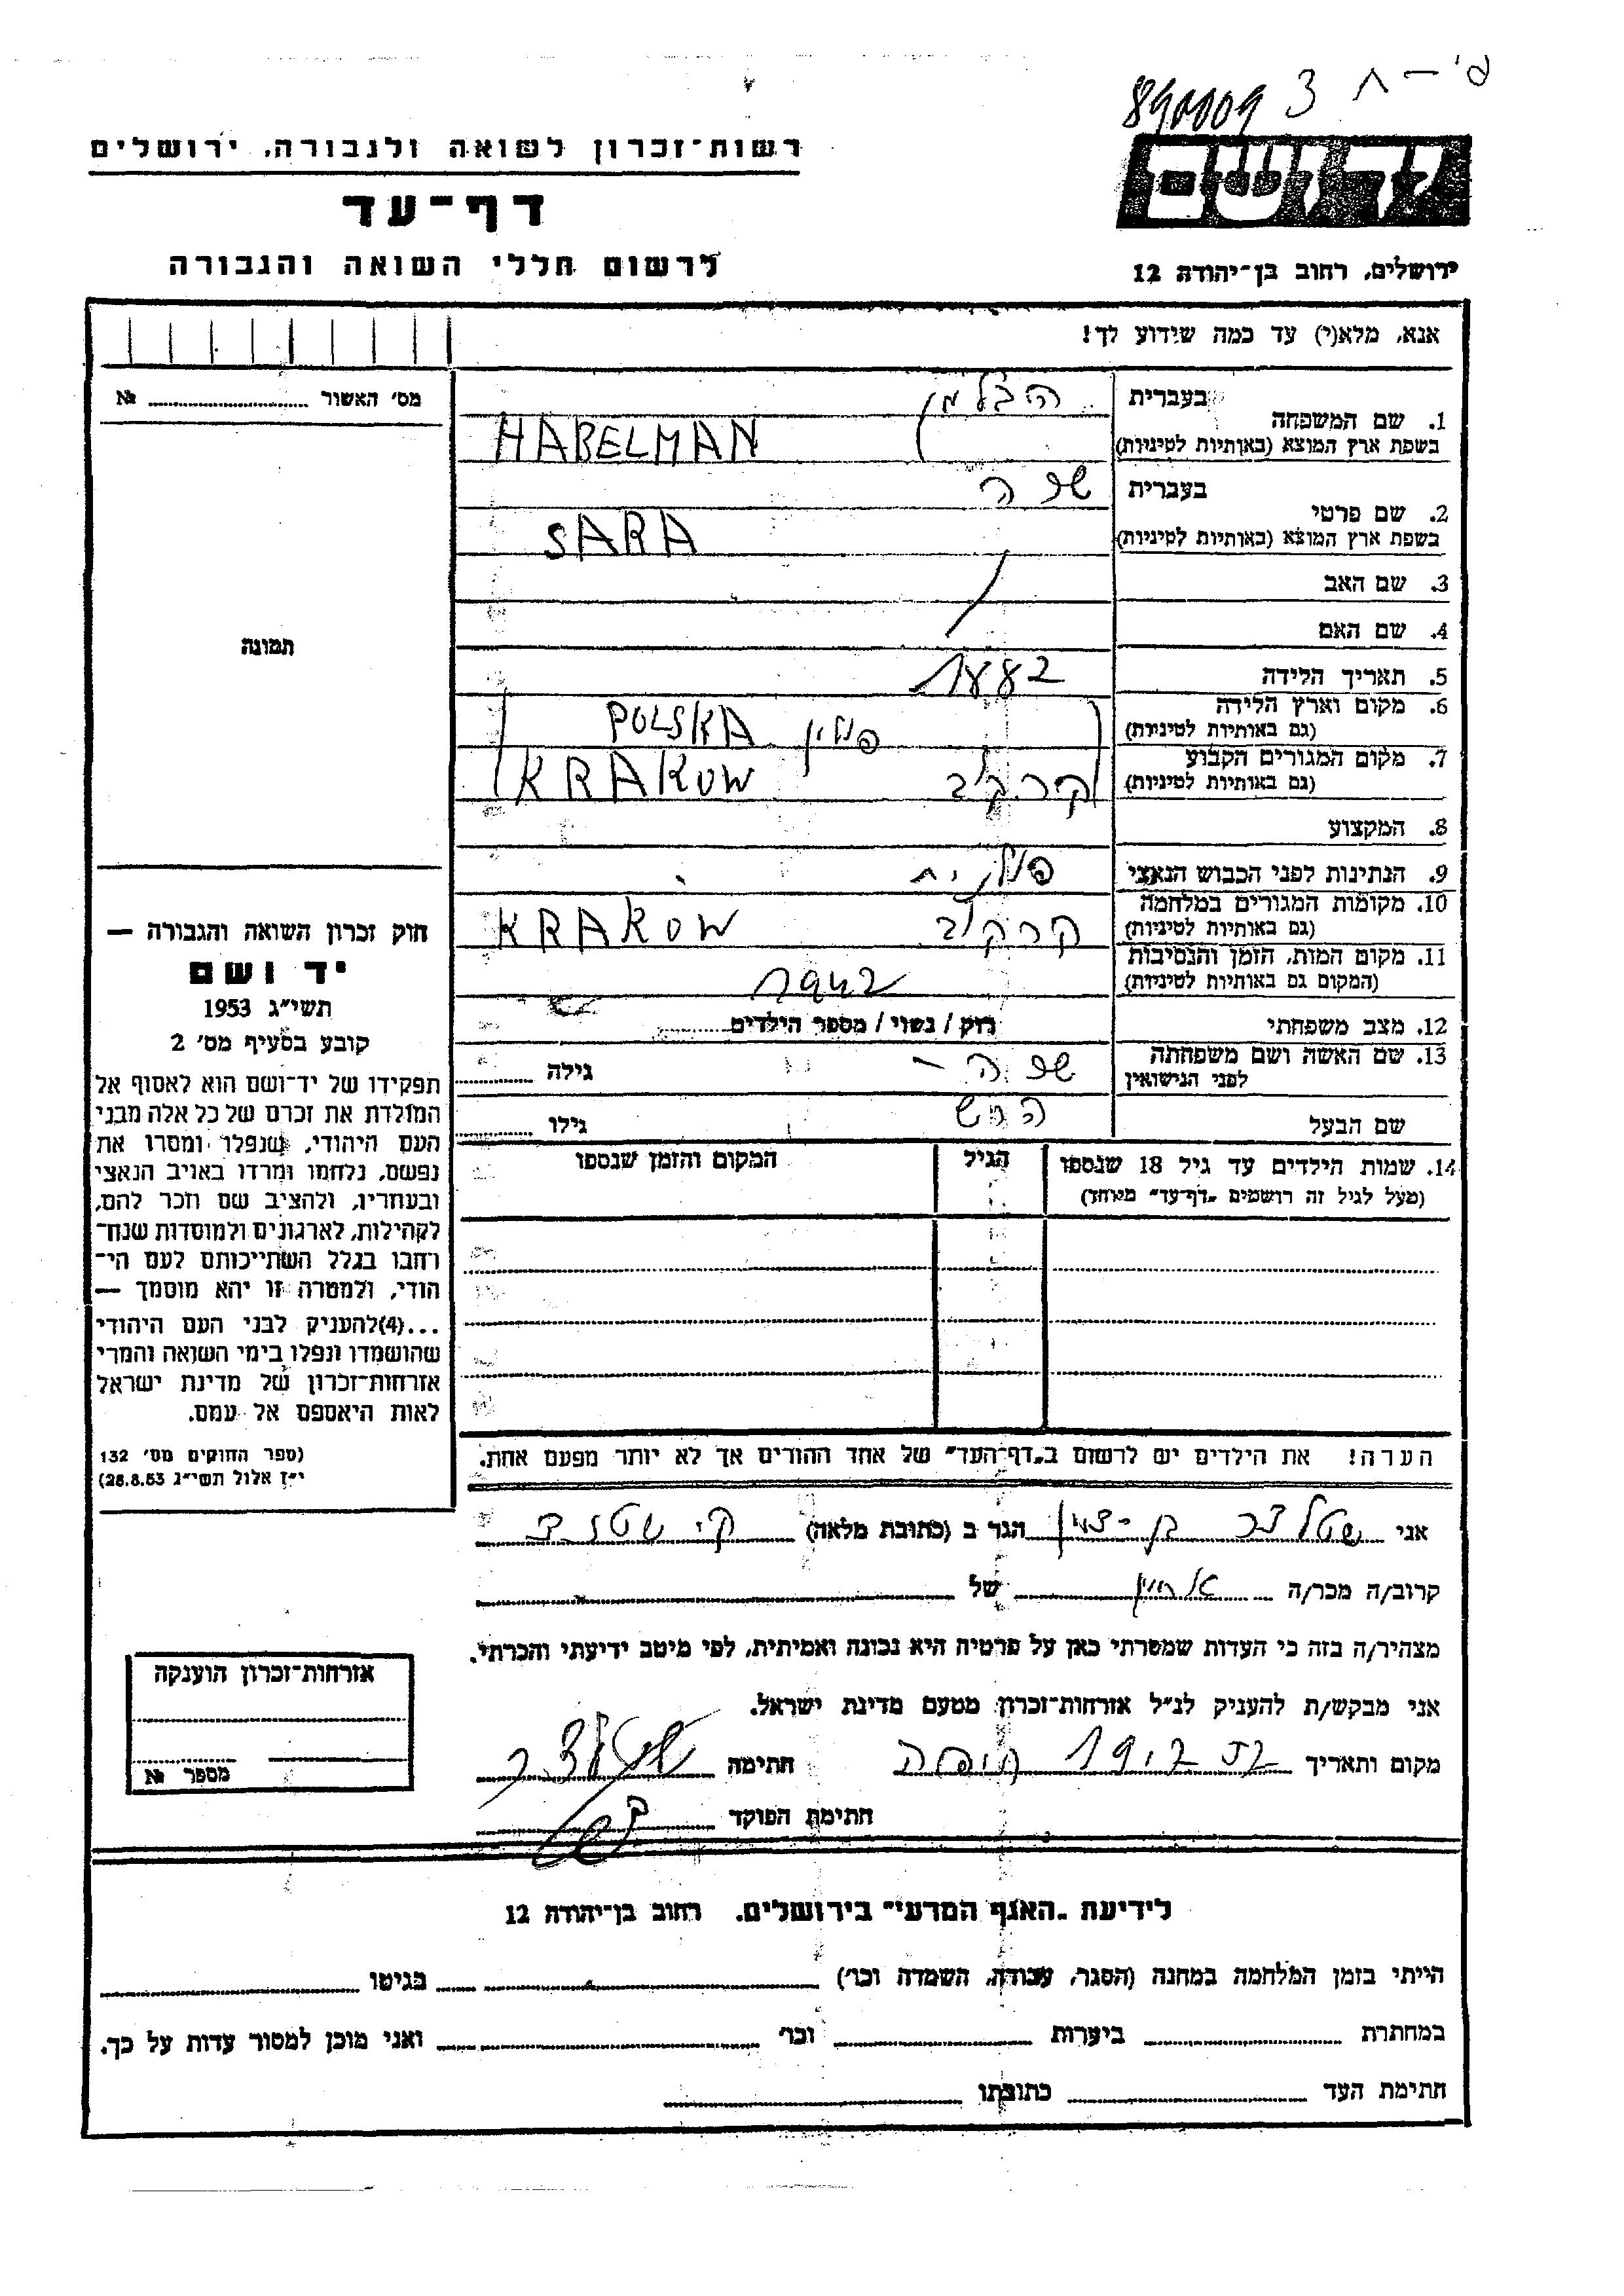 890009 3
רשות־זכרון לשואה ולגבורה, ירושלים
יד ושם
דף־עד
לרשום חללי השואה והגבורה
ירושלים, רחוב בן־יהודה 12
אנא, מלא(י) עד כמה שידוע לך!
מס׳ האשור № 
1. שם המשפחה בעברית הבלמן
בשפת ארץ המוצא (באותיות לטיניות) HABELMAN
2. שם פרטי בעברית שרה
בשפת ארץ המוצא (באותיות לטיניות) SARA
3. שם האב
4. שם האם
תמונה
5. תאריך הלידה 1882
6. מקום וארץ הלידה (גם באותיות לטיניות) פולין POLSKA
7. מקום המגורים הקבוע (גם באותיות לטיניות) קרקוב KRAKOW
8. המקצוע
9. הנתינות לפני הכבוש הנאצי פולנית
10. מקומות המגורים במלחמה (גם באותיות לטיניות) קרקוב KRAKOW
11. מקום המות, הזמן והנסיבות (המקום גם באותיות לטיניות) 1942
12. מצב משפחתי רוק / נשוי / מספר הילדים
13. שם האשה ושם משפחתה לפני הנישואין שרה – גילה
שם הבעל הרש גילו
14. שמות הילדים עד גיל 18 שנספו הגיל המקום והזמן שנספו
(מעל לגיל זה רושמים „דף־עד״ מיוחד)
חוק זכרון השואה והגבורה —
יד ושם
תשי״ג 1953
קובע בסעיף מס׳ 2
תפקידו של יד־ושם הוא לאסוף אל
המולדת את זכרם של כל אלה מבני
העם היהודי, שנפלו ומסרו את
נפשם, נלחמו ומרדו באויב הנאצי
ובעוזריו, ולהציב שם וזכר להם,
לקהילות, לארגונים ולמוסדות שנח־
רחבו בגלל השתייכותם לעם הי־
הודי, ולמטרה זו יהא מוסמך —
...(4)להעניק לבני העם היהודי
שהושמדו ונפלו בימי השואה והמרי
אזרחות־זכרון של מדינת ישראל
לאות היאספם אל עמם.
(ספר החוקים מס׳ 132
י״ז אלול תשי״ג 28.8.53)
הערה! את הילדים יש לרשום ב„דף־העד״ של אחד ההורים אך לא יותר מפעם אחת.
אני בן-ציון הגר ב (כתובת מלאה)
קרוב/ה מכר/ה של
מצהיר/ה בזה כי העדות שמסרתי כאן על פרטיה היא נכונה ואמיתית, לפי מיטב ידיעתי והכרתי.
אני מבקש/ת להעניק לנ״ל אזרחות־זכרון מטעם מדינת ישראל.
מקום ותאריך חיפה חתימה
חתימת הפוקד
אזרחות־זכרון הוענקה
מספר №
לידיעת „האגף המדעי״ בירושלים, רחוב בן־יהודה 12
הייתי בזמן המלחמה במחנה (הסגר, עבודה, השמדה וכו׳) בגיטו
במחתרת ביערות וכו׳ ואני מוכן למסור עדות על כך.
חתימת העד כתובתו